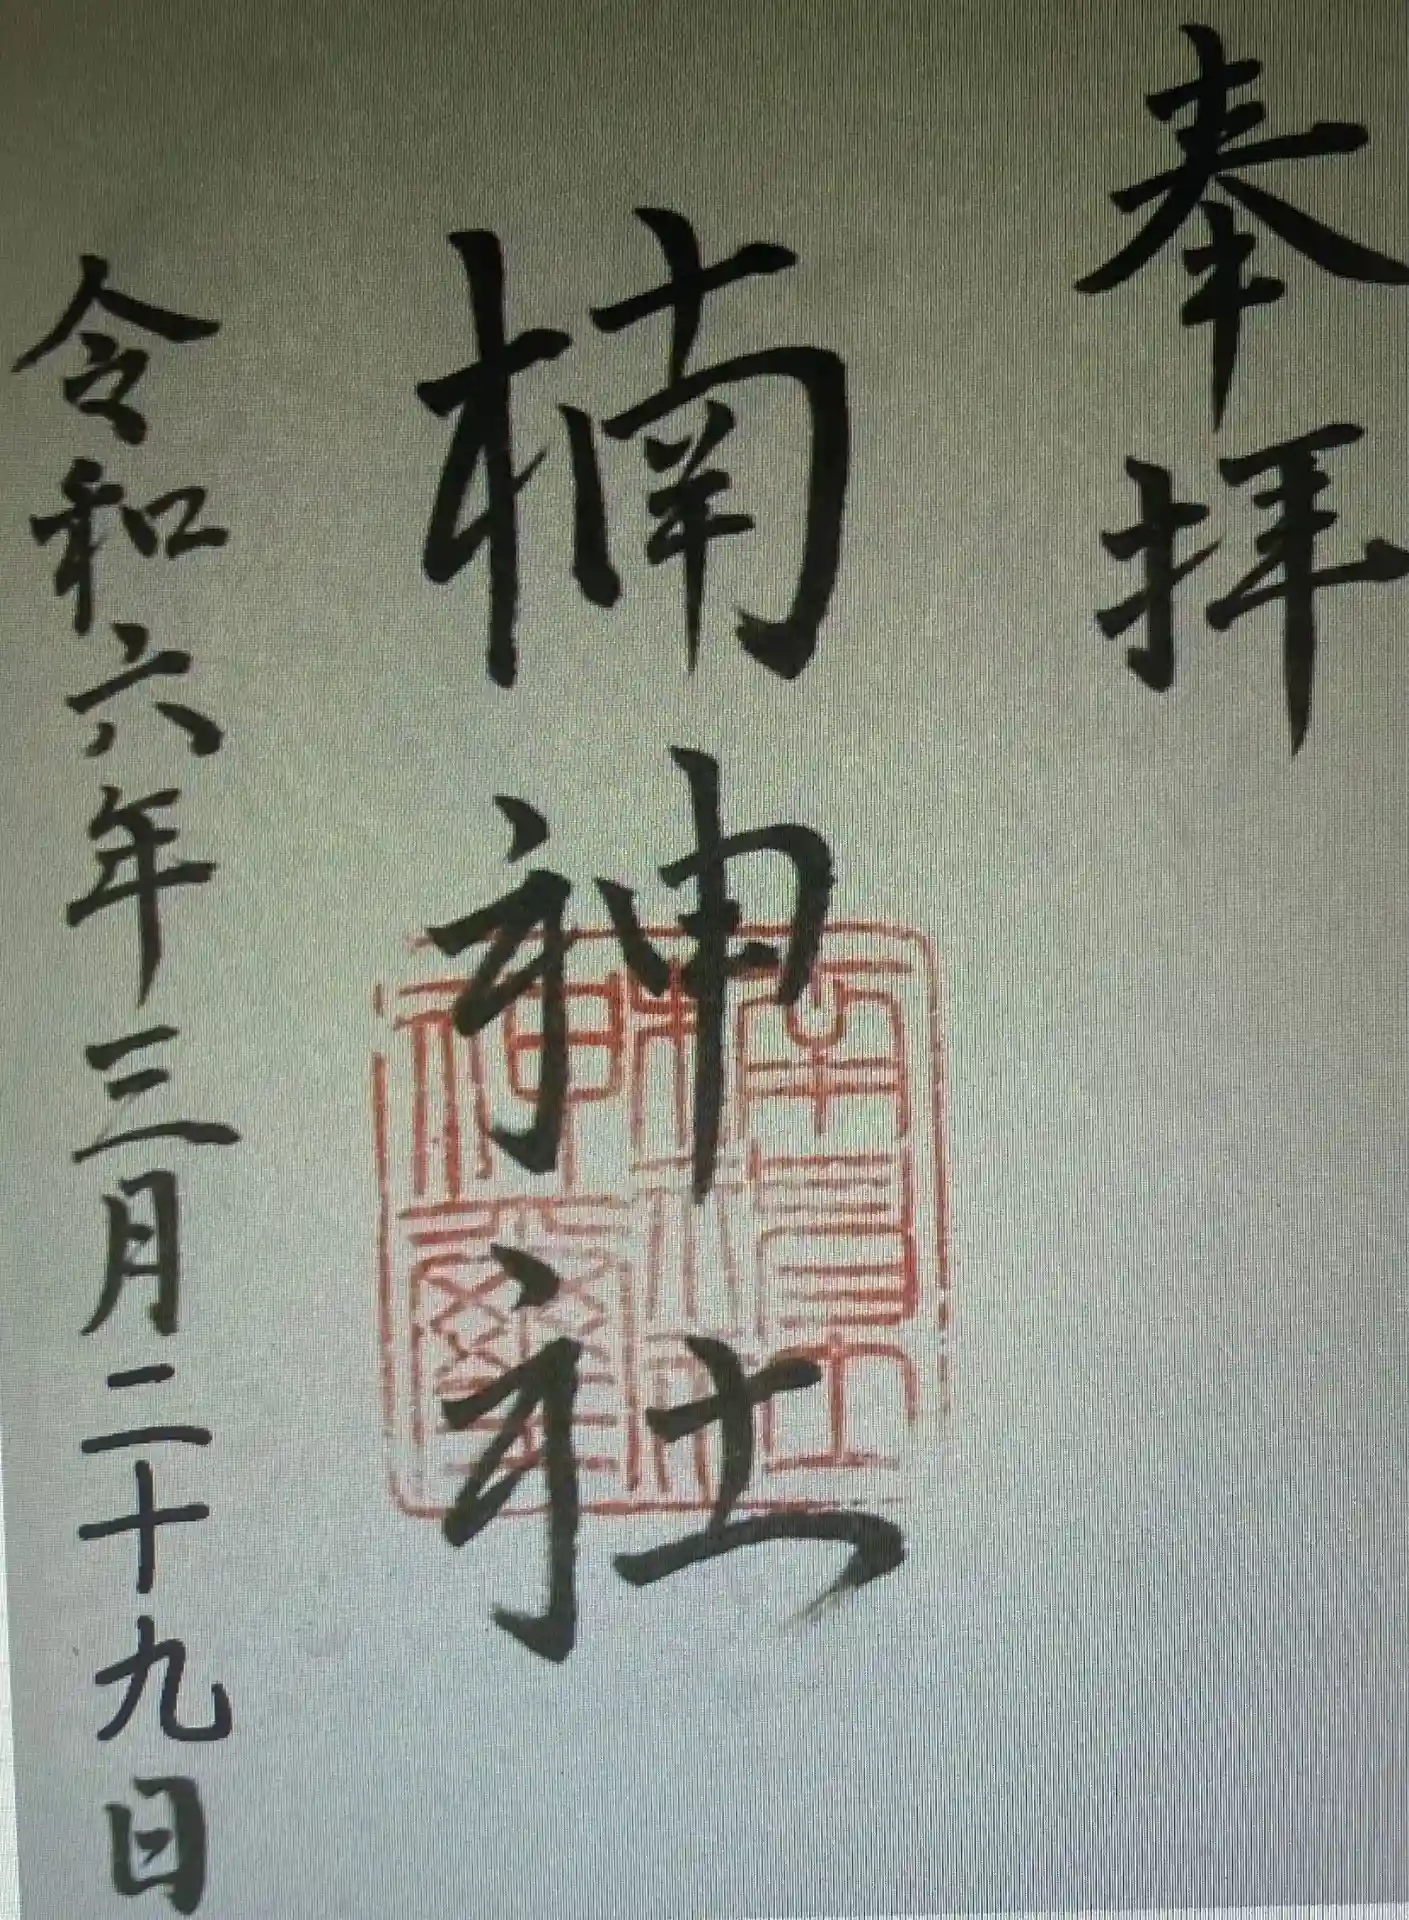 奉拝
楠神社
令和六年三月二十九日